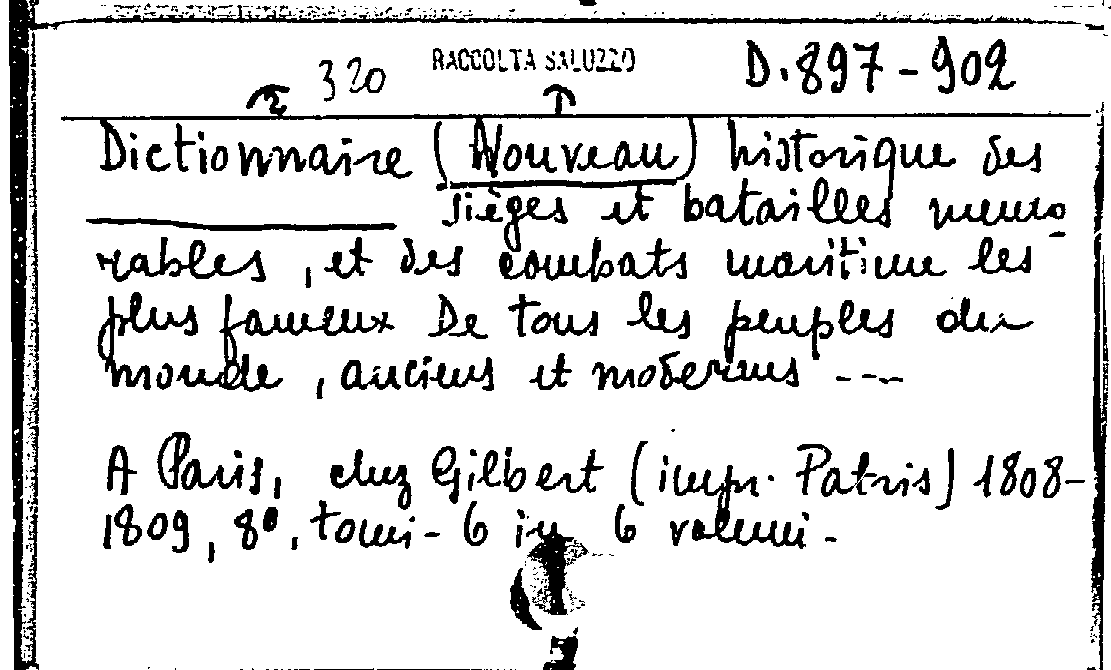 320 RACCOLTA SALUZZO D.897-902
2 1
Dictionnaire (Nouveau) historique des
sièges et batailles memo-
rables, et des combats maritime les
plus fameux De tous les peuples du
monde, anciens et moderns ----
A Paris, chez Gilbert (impr. Patris) 1808-
1809, 8º, tomi - 6 in 6 volumi.